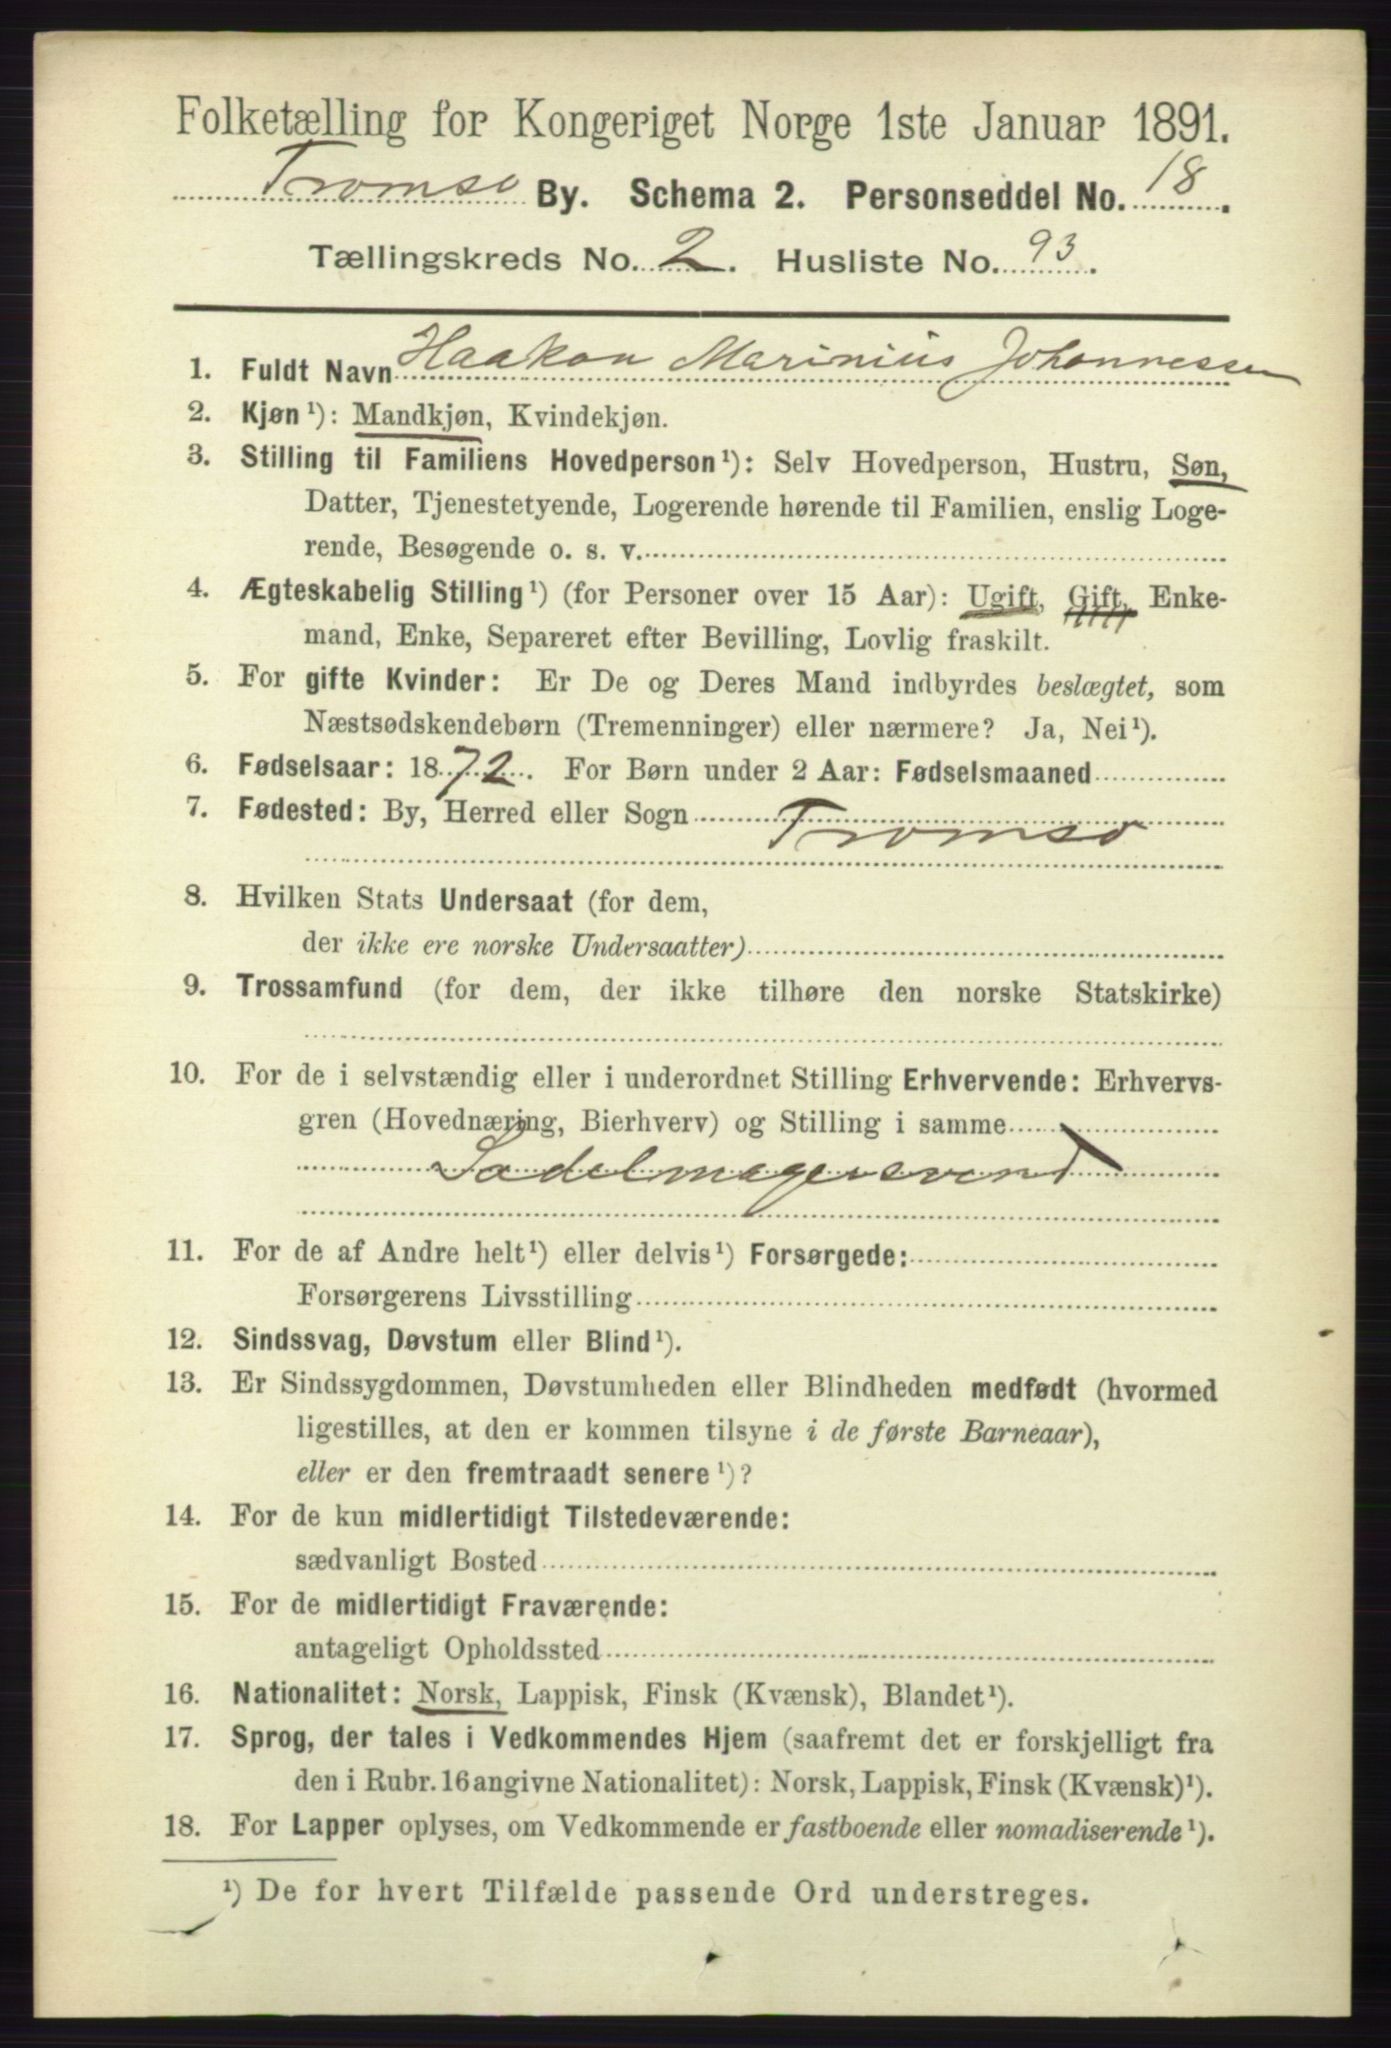 Folketælling for Kongeriget Norge 1ste Januar 1891.
Tromsø By. Schema 2. Personseddel No. 18.
Tællingskreds No. 2. Husliste No. 93.
1. Fuldt Navn Haakon Marinius Johannessen
2. Kjøn¹): Mandkjøn, Kvindekjøn.
3. Stilling til Familiens Hovedperson¹): Selv Hovedperson, Hustru, Søn,
Datter, Tjenestetyende, Logerende hørende til Familien, enslig Loge-
rende, Besøgende o. s. v.
4. Ægteskabelig Stilling¹) (for Personer over 15 Aar): Ugift, Gift, Enke-
mand, Enke, Separeret efter Bevilling, Lovlig fraskilt.
5. For gifte Kvinder: Er De og Deres Mand indbyrdes beslægtet, som
Næstsødskendebørn (Tremenninger) eller nærmere? Ja, Nei¹).
6. Fødselsaar: 1872. For Børn under 2 Aar: Fødselsmaaned
7. Fødested: By, Herred eller Sogn Tromsø
8. Hvilken Stats Undersaat (for dem,
der ikke ere norske Undersaatter)
9. Trossamfund (for dem, der ikke tilhøre den norske Statskirke)
10. For de i selvstændig eller i underordnet Stilling Erhvervende: Erhvervs-
gren (Hovednæring, Bierhverv) og Stilling i samme
Sadelmagersvend
11. For de af Andre helt¹) eller delvis¹) Forsørgede:
Forsørgerens Livsstilling
12. Sindssvag, Døvstum eller Blind¹).
13. Er Sindssygdommen, Døvstumheden eller Blindheden medfødt (hvormed
ligestilles, at den er kommen tilsyne i de første Barneaar),
eller er den fremtraadt senere¹)?
14. For de kun midlertidigt Tilstedeværende:
sædvanligt Bosted
15. For de midlertidigt Fraværende:
antageligt Opholdssted
16. Nationalitet: Norsk, Lappisk, Finsk (Kvænsk), Blandet¹).
17. Sprog, der tales i Vedkommendes Hjem (saafremt det er forskjelligt fra
den i Rubr. 16 angivne Nationalitet): Norsk, Lappisk, Finsk (Kvænsk)¹).
18. For Lapper oplyses, om Vedkommende er fastboende eller nomadiserende¹).
¹) De for hvert Tilfælde passende Ord understreges.